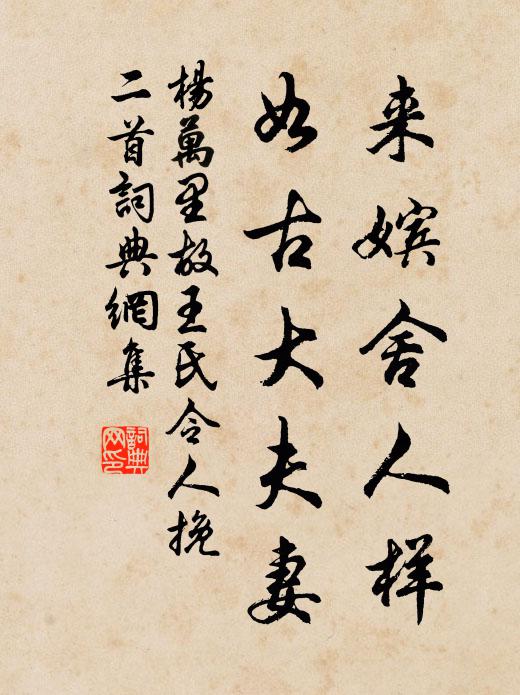 来嫔舍人样
如古大夫妻
楊萬里故王氏令人挽
二首詞典網集
詞典
网印